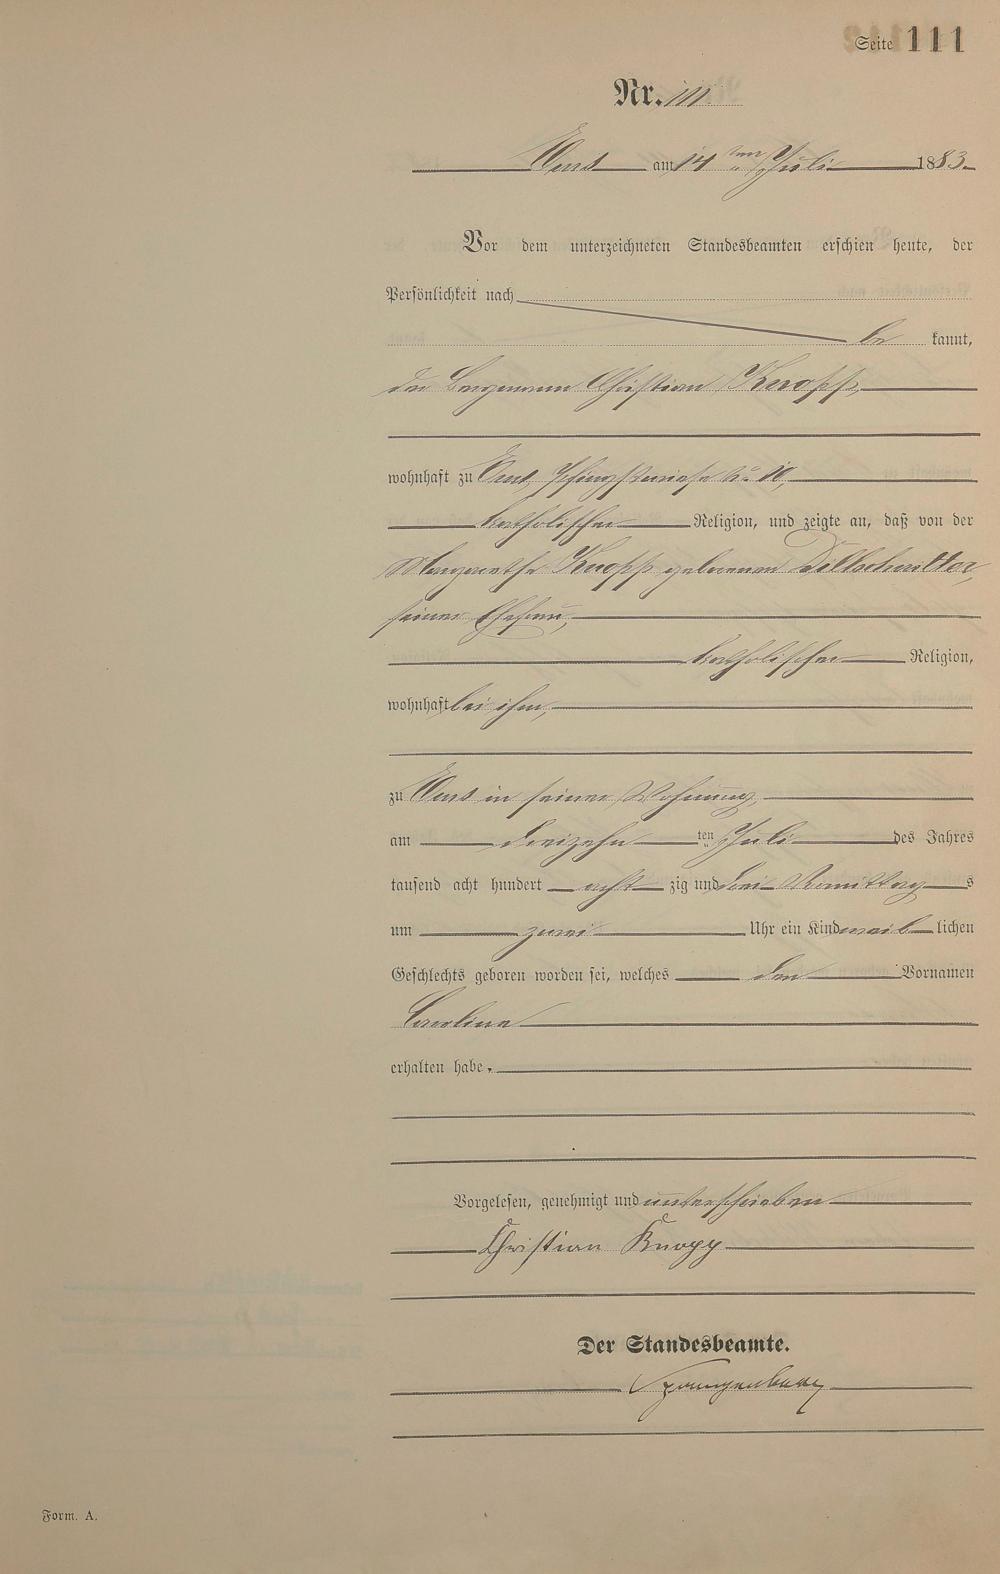 Seite 111
Nr. 111.
Ems am 14 ten Juli 1883.
Vor dem unterzeichneten Standesbeamten erschien heute, der
Persönlichkeit nach
be kannt,
der Bergmann Christian Knopp,
wohnhaft zu Ems, Pfingstwiese No 10,
katholischer Religion, und zeigte an, daß von der
Margarethe Knopp geborenen
seiner Ehefrau,
katholischer Religion,
wohnhaft bei ihm,
zu Ems in seiner Wohnung,
am dreizehn ten Juli des Jahres
tausend acht hundert acht zig und drei Vormittag s
um zwei Uhr ein Kind weib lichen
Geschlechts geboren worden sei, welches den Vornamen
Carolina
erhalten habe.
Vorgelesen, genehmigt und unterschrieben
Christian Knopp
Der Standesbeamte.
Form. A.